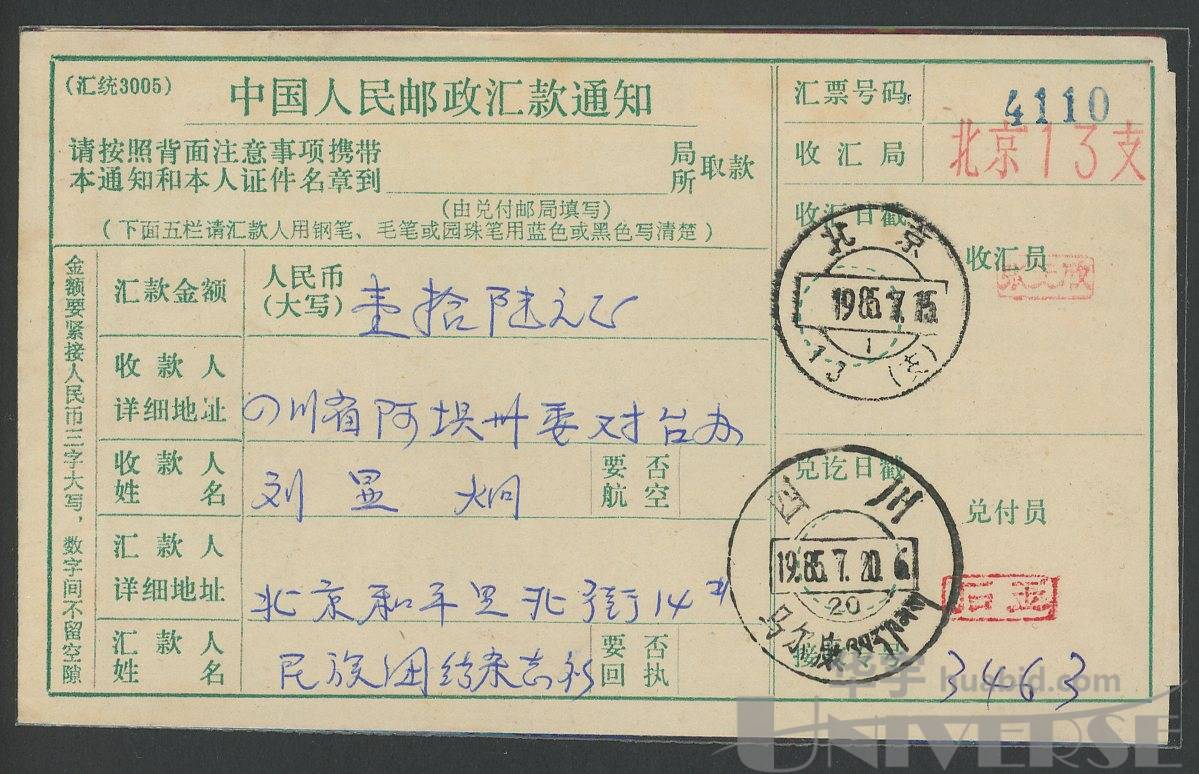 (汇统3005)
中国人民邮政汇款通知
请按照背面注意事项携带
本通知和本人证件名章到
局
所
取款
(由兑付邮局填写)
(下面五栏请汇款人用钢笔、毛笔或园珠笔用蓝色或黑色写清楚)
金额要紧接人民币三字大写，数字间不留空隙
汇款金额
人民币
(大写)
壹拾陆元正
收款人
详细地址
四川省阿坝州委对台办
收款人
姓名
刘显炯
要否
航空
汇款人
详细地址
北京和平里北街14#
汇款人
姓名
民族团结杂志社
要否
回执
汇票号码
4110
收汇局
北京13支
收汇日戳
北京
1985.7.15
1
13(支)
收汇员
兑讫日戳
四川
1985.7.20
20
马尔康
兑付员
3463
华宇 huabid.com
UNIVERSE